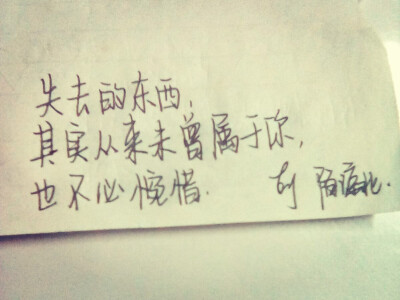 失去的东西,
其实从来未曾属于你,
也不必惋惜.